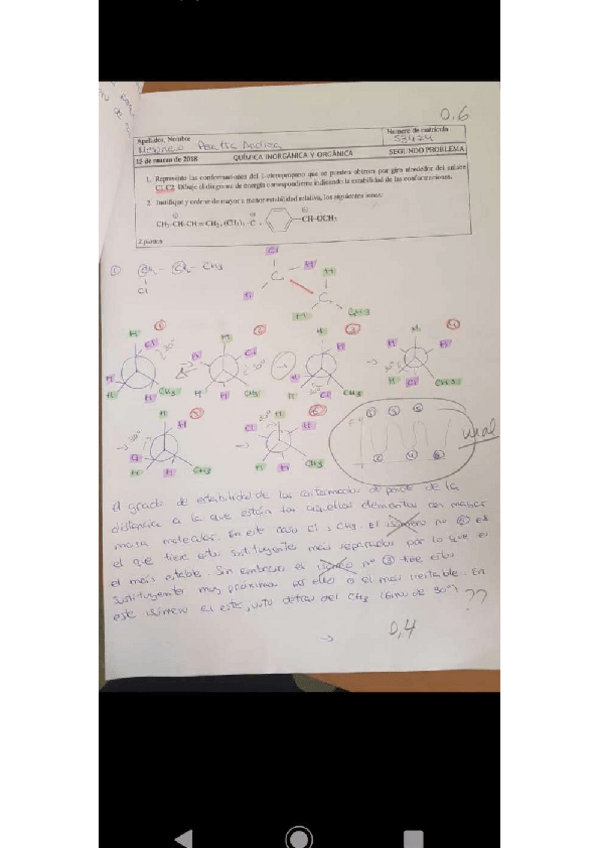 0,6
Apellidos, Nombre
Número de matrícula
53424
15 de marzo de 2018 QUÍMICA INORGÁNICA Y ORGÁNICA SEGUNDO PROBLEMA
1. Represente las conformaciones del 1-cloropropano que se pueden obtener por giro alrededor del enlace
C1-C2. Dibuje el diagrama de energía correspondiente indicando la estabilidad de las conformaciones.
2. Justifique y ordene de mayor a menor estabilidad relativa, los siguientes iones:
CH₃-CH-CH=CH₂, (CH₃)₃-C, CH-OCH₃
2 puntos
① CH₂ - CH₂ - CH₃
Cl
Cl
H
C
H
H
C
H
CH3
H
Cl
30°
H
H
H
CH3
H
Cl
30°
H
H
CH3
H
H
H
30°
Cl
CH3
④
H
H
30°
H
Cl
CH3
H
H
30°
Cl
H
H
CH3
30°
H
Cl
H
H
H
CH3
E
mal
El grado de estabilidad de las conformaciones depende de la
distancia a la que están los aquellos elementos con mayor
masa molecular. En este caso Cl y CH3. El isómero nº ⑥ es
el que tiene estos sustituyentes más separados por lo que es
el más estable. Sin embargo el isómero nº ③ tiene estos
sustituyentes muy próximos por ello es el más inestable. En
este isómero el está justo detrás del CH3 (giro de 30º) ??
0,4